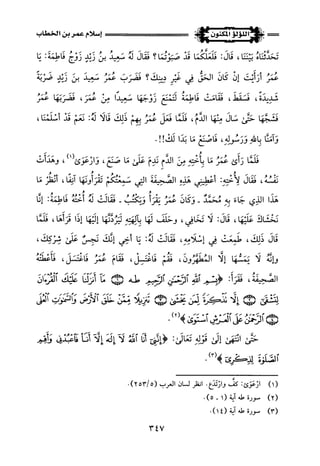 إسلام عمر بن الخطاب
اللؤلؤ المكنون
تَحَدَّثْنَاهُ بَيْنَنَا، قَالَ: فَلَعَلَّكُمَا قَدْ صَبَوْتُمَا؟ فَقَالَ لَهُ سَعِيدُ بنُ زَيْدٍ زَوْجُ فَاطِمَةَ: يَا
عُمَرُ أَرَأَيْتَ إِنْ كَانَ الحَقُّ فِي غَيْرِ دِينِكَ؟ فَضَرَبَ عُمَرُ سَعِيدَ بنَ زَيْدٍ ضَرْبَةً
شَدِيدَةً، فَسَقَطَ، فَقَامَتْ فَاطِمَةُ لِتَمْنَعَ زَوْجَهَا سَعِيدًا مِنْ عُمَرَ، فَضَرَبَهَا عُمَرُ
فَشَجَّهَا حَتَّى سَالَ مِنْهَا الدَّمُ، فَلَمَّا فَعَلَ عُمَرُ بِهِمْ ذَلِكَ قَالَا لَهُ: نَعَمْ قَدْ أَسْلَمْنَا،
وَآمَنَّا بِاللهِ وَرَسُولِهِ، فَاصْنَعْ مَا بَدَا لَكَ!!.
فَلَمَّا رَأَى عُمَرُ مَا بِأُخْتِهِ مِنَ الدَّمِ نَدِمَ عَلَى مَا صَنَعَ، وَارْعَوَى(١)، وَهَدَأَتْ
نَفْسُهُ، فَقَالَ لِأُخْتِهِ: أَعْطِينِي هَذِهِ الصَّحِيفَةَ التِي سَمِعْتُكُمْ تَقْرَأُونَهَا آنِفًا، أَنْظُرُ مَا
هَذَا الذِي جَاءَ بِهِ مُحَمَّدٌ. وَكَانَ عُمَرُ يَقْرَأُ وَيَكْتُبُ. فَقَالَتْ لَهُ أُخْتُهُ فَاطِمَةُ: إِنَّا
نَخْشَاكَ عَلَيْهَا، قَالَ: لَا تَخَافِي، وَحَلَفَ لَهَا بِآلِهَتِهِ لَيَرُدَّنَّهَا إِلَيْهَا إِذَا قَرَأَهَا، فَلَمَّا
قَالَ ذَلِكَ، طَمِعَتْ فِي إِسْلَامِهِ، فَقَالَتْ لَهُ: يَا أَخِي إِنَّكَ نَجِسٌ عَلَى شِرْكِكَ،
وَإِنَّهُ لَا يَمَسُّهَا إِلَّا المُطَهَّرُونَ، فَقُمْ فَاغْتَسِلْ، فَقَامَ عُمَرُ فَاغْتَسَلَ، فَأَعْطَتْهُ
الصَّحِيفَةَ، فَقَرَأَ: ﴿بِسْمِ اللَّهِ الرَّحْمَنِ الرَّحِيمِ طه مَا أَنزَلْنَا عَلَيْكَ الْقُرْآنَ
لِتَشْقَى إِلَّا تَذْكِرَةً لِمَن يَخْشَى تَنزِيلًا مِمَّنْ خَلَقَ الْأَرْضَ وَالسَّمَوَاتِ الْعُلَى
الرَّحْمَنُ عَلَى الْعَرْشِ اسْتَوَى﴾(٢).
حَتَّى انْتَهَى إِلَى قَوْلِهِ تَعَالَى: ﴿إِنَّنِي أَنَا اللَّهُ لَا إِلَهَ إِلَّا أَنَا فَاعْبُدْنِي وَأَقِمِ
الصَّلَاةَ لِذِكْرِي﴾(٣).
(١) ارْعَوَى: كفَّ وارْتَدَع. انظر لسان العرب (٢٥٣/٥).
(٢) سورة طه آية (١ ـ ٥).
(٣) سورة طه آية (١٤).
٣٤٧